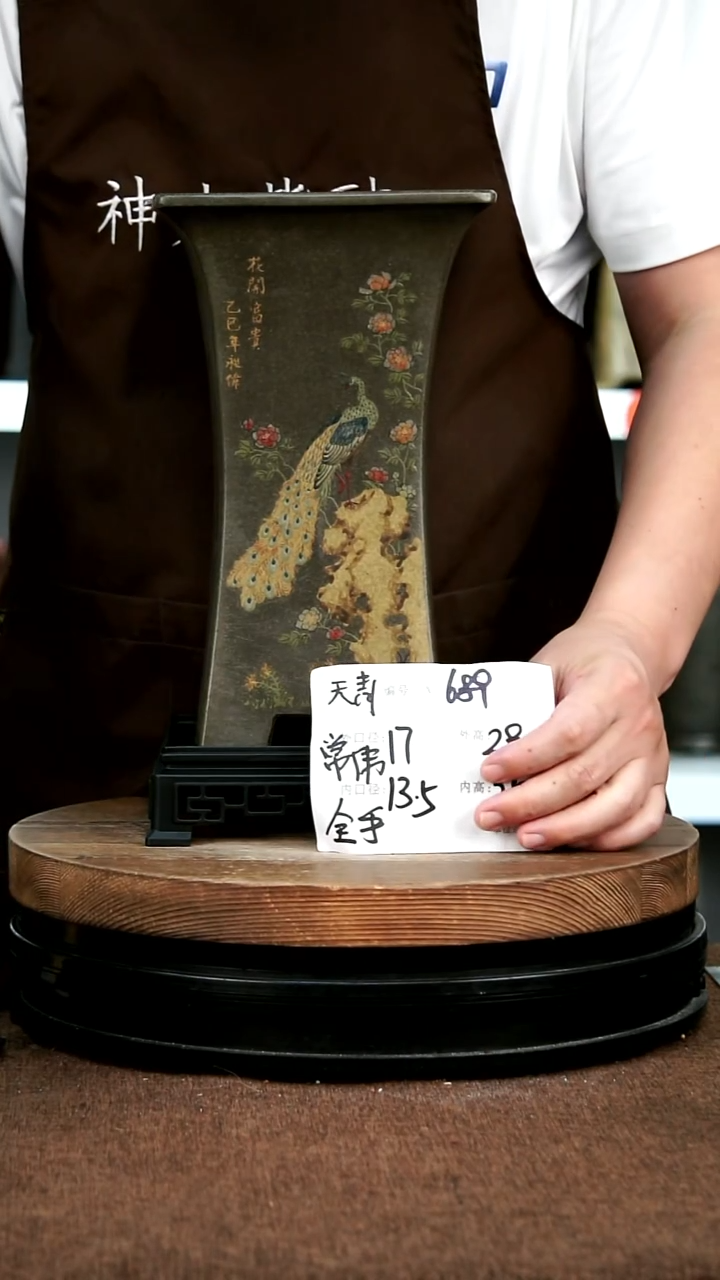 神
花開富貴
乙巳年
天青 编号: 689
外口径: 17 外高: 28
常伟
内口径: 13.5 内高:
全手